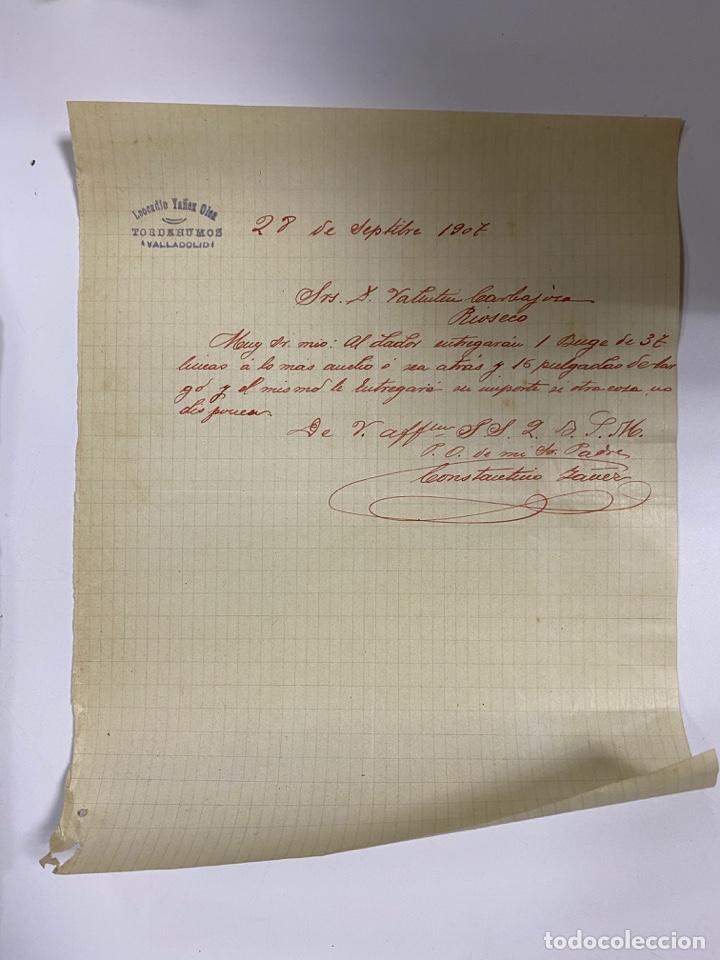 Leocadio Yañez Olea
TORDEHUMOS
VALLADOLID
28 de Septibre 1907
Srs. D. Valentin Carbajosa
Rioseco
Muy Sr. mio: Al dador entregarán 1 Buge de 37
lineas á lo mas ancho ó sea atrás y 16 pulgadas de lar
go y el mismo le entregará su importe si otra cosa no
disponen
De V. affmo S S. Q. B. S. M.
P. O. de mi Sr. Padre
Constantino Yañez
todocoleccion
todocoleccion.net